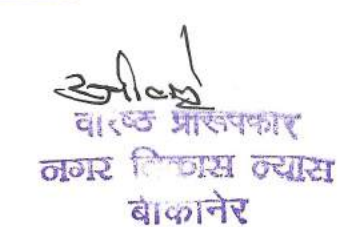 वरिष्ठ प्रारूपकार
नगर विकास न्यास
बीकानेर